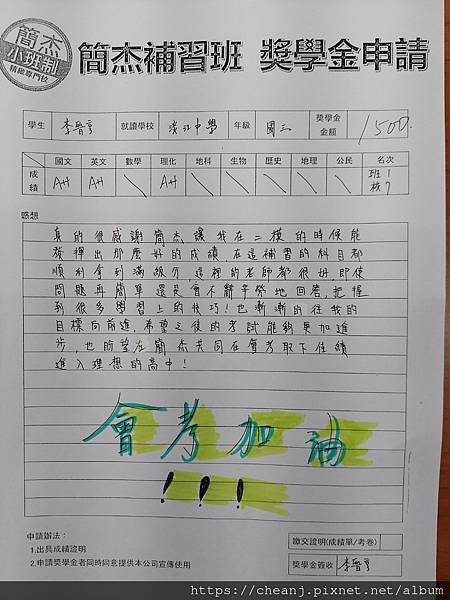 簡杰
小班制
精緻專門校
簡杰補習班 獎學金申請
學生 李晉亨 就讀學校 淡江中學 年級 國三 獎學金金額 1500
國文 英文 數學 理化 地科 生物 歷史 地理 公民 名次
成績 A++ A++ \ A++ \ \ \ \ \ 班1 校7
感想
真的很感謝簡杰讓我在二模的時候能
發揮出那麼好的成績，在這補習的科目都
順利拿到滿級分，這裡的老師都很好即使
問題再簡單還是會不辭辛勞地回答，把握
到很多學習上的技巧！也漸漸的往我的
目標向前進，希望之後的考試能夠更加進
步，也盼望在簡杰共同在會考取下佳績
進入理想的高中！
會考加油
!!!
申請辦法：
1.出具成績證明
2.申請獎學金者同時同意提供本公司宣傳使用
繳交證明(成績單/考卷)
獎學金簽收 李晉亨
https://cheanj.pixnet.net/album